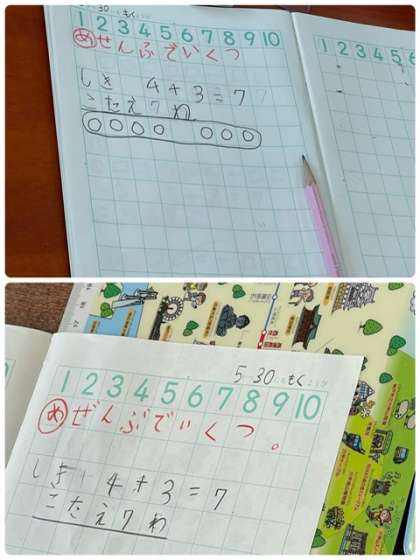 5 30 もく
1 2 3 4 5 6 7 8 9 10
め ぜんぶでいくつ
しき 4+3=7
こたえ7わ
1 2 3 4 5 6
5 30 もく
1 2 3 4 5 6 7 8 9 10
め ぜんぶでいくつ。
しき 4+3=7
こたえ7わ